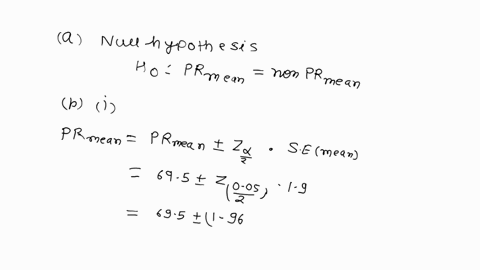 (a) Null hypothesis
H₀ : PR mean = non PR mean
(b) (i)
PR mean = PR mean ± Z α/2 • S.E (mean)
= 69.5 ± Z (0.05/2) • 1.9
= 69.5 ± (1-96